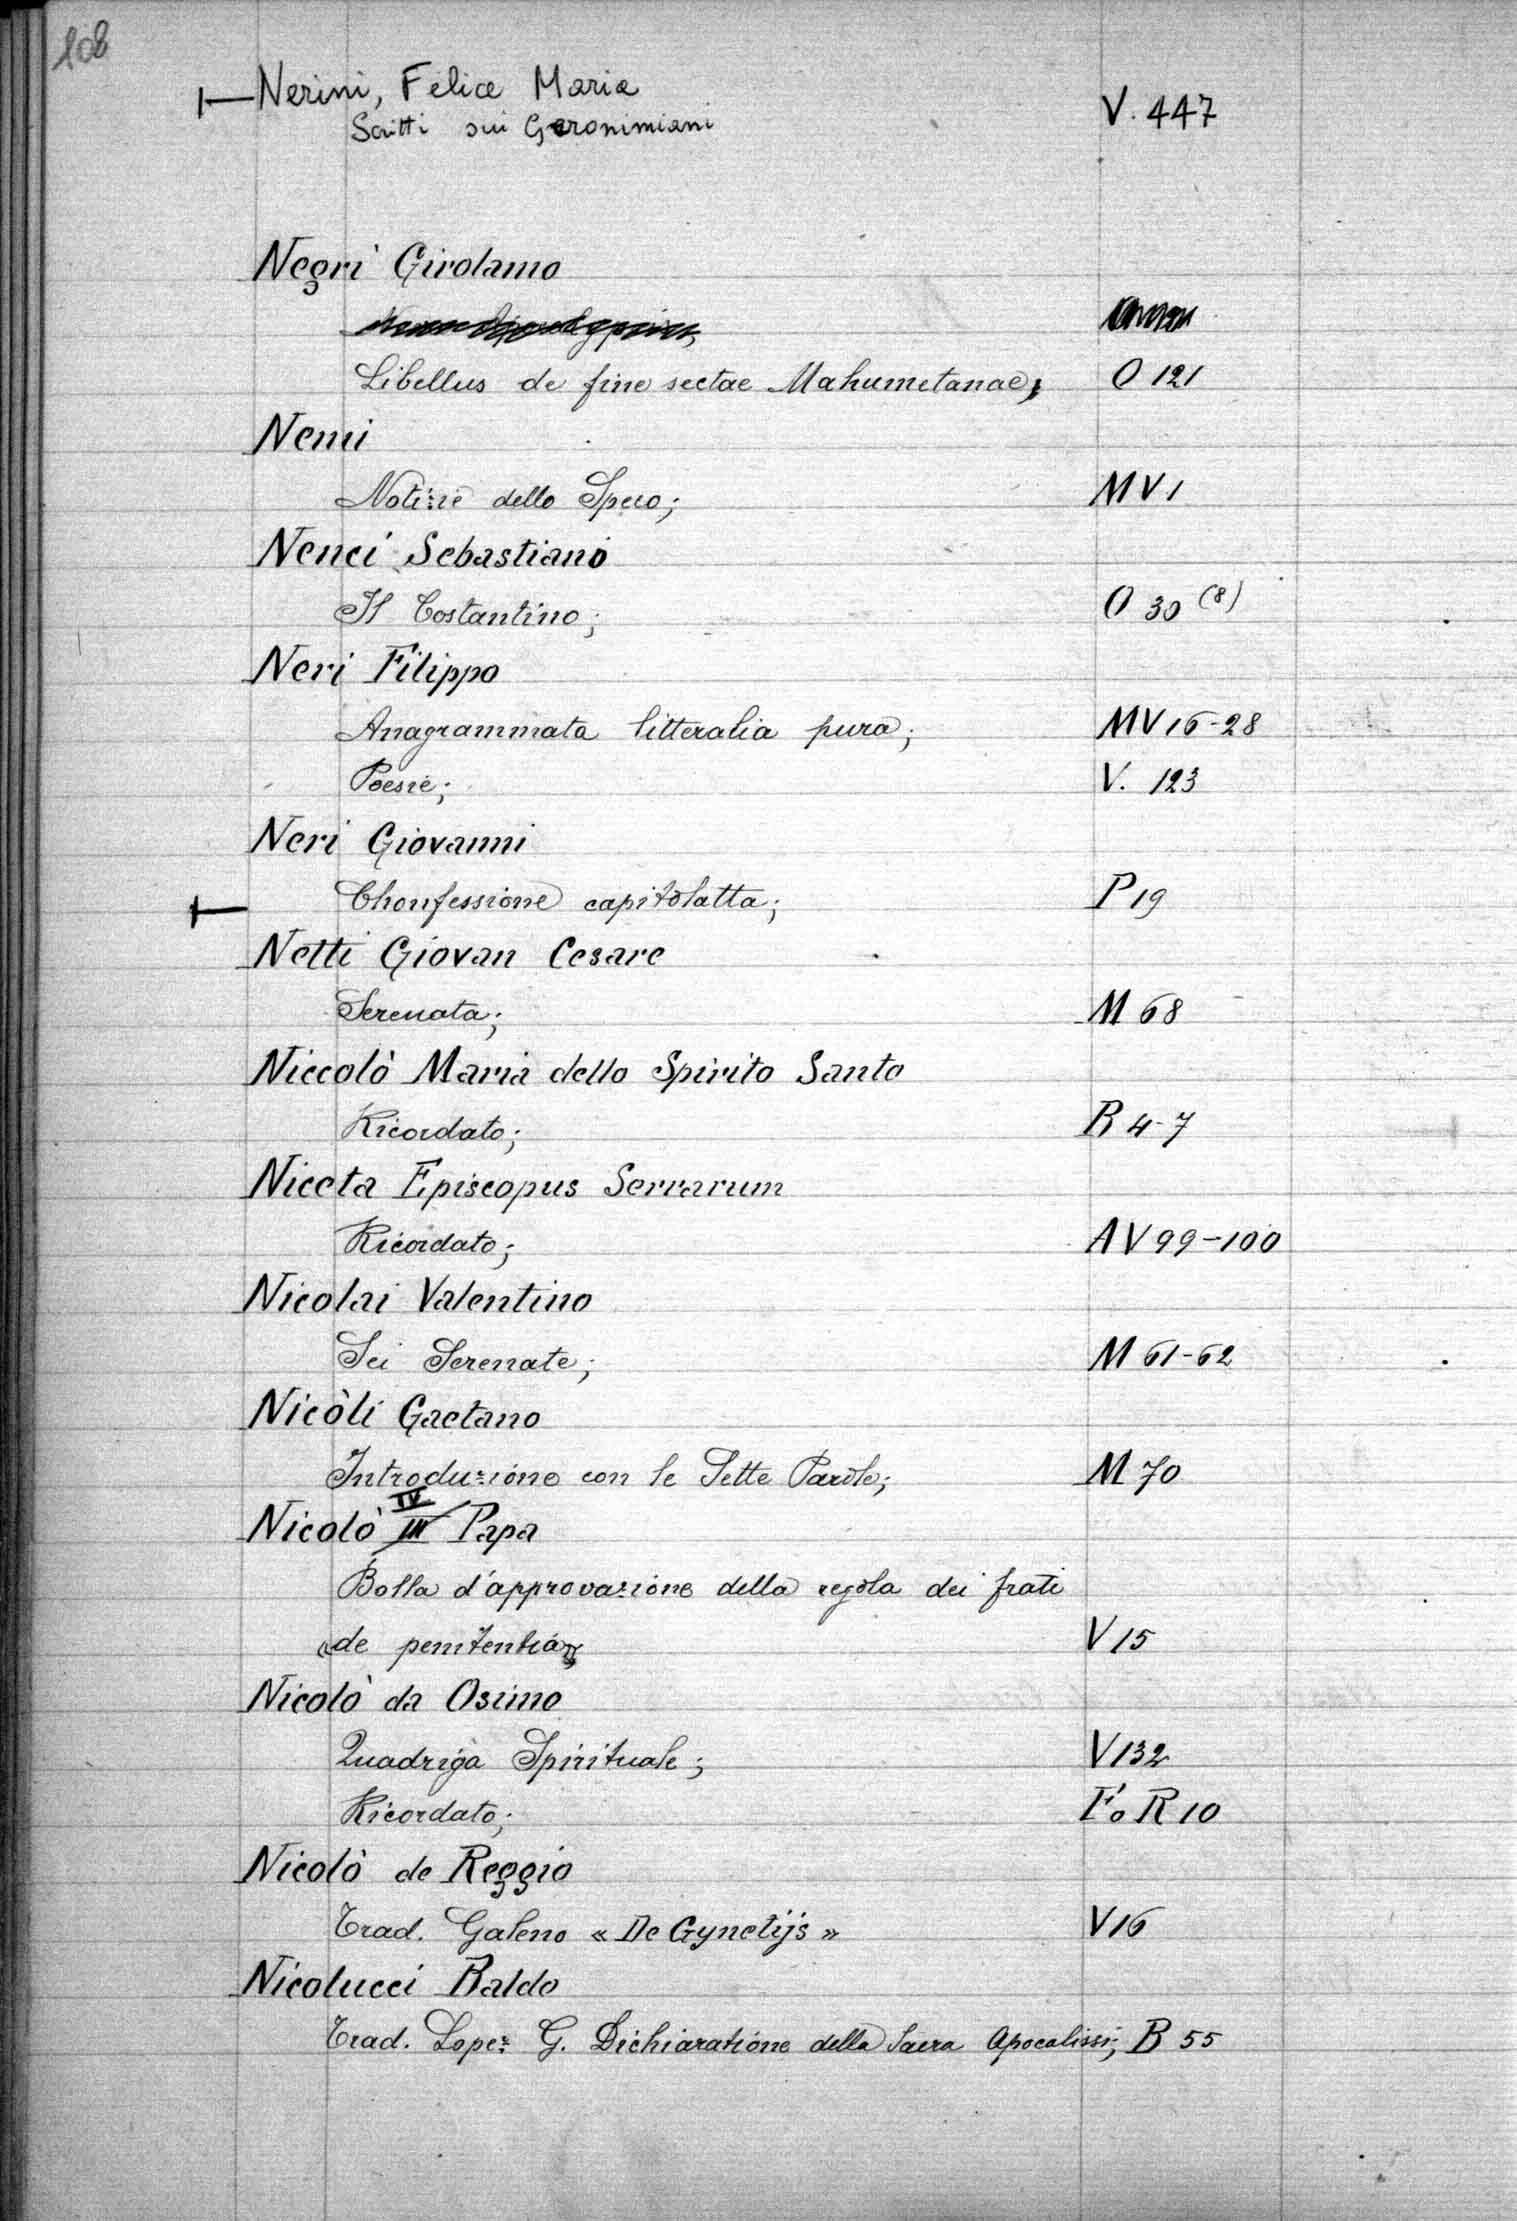 108
Nerini, Felice Maria V. 447
Scritti sui Geronimiani
Negri Girolamo
Libellus de fine sectae Mahumetanae; O 121
Nemi
Notizie dello Speco; MV 1
Nenci Sebastiano
Il Costantino; O 30 (8)
Neri Filippo
Anagrammata litteralia pura; MV 16-28
Poesie; V. 123
Neri Giovanni
Chonfessione capitolatta; P 19
Netti Giovan Cesare
Serenata; M 68
Niccolò Maria dello Spirito Santo
Ricordato; R 4-7
Niceta Episcopus Serrarum
Ricordato; AV 99-100
Nicolai Valentino
Sei Serenate; M 61-62
Nicòli Gaetano
Introduzione con le Sette Parole; M 70
IV
Nicolò III Papa
Bolla d'approvazione della regola dei frati
«de penitentia»; V 15
Nicolò da Osimo
Quadriga Spirituale; V 132
Ricordato; Fo R 10
Nicolò de Reggio
Trad. Galeno « De Gynetijs » V 16
Nicolucci Baldo
Trad. Lopez G. Dichiaratione della Sacra Apocalissi; B 55